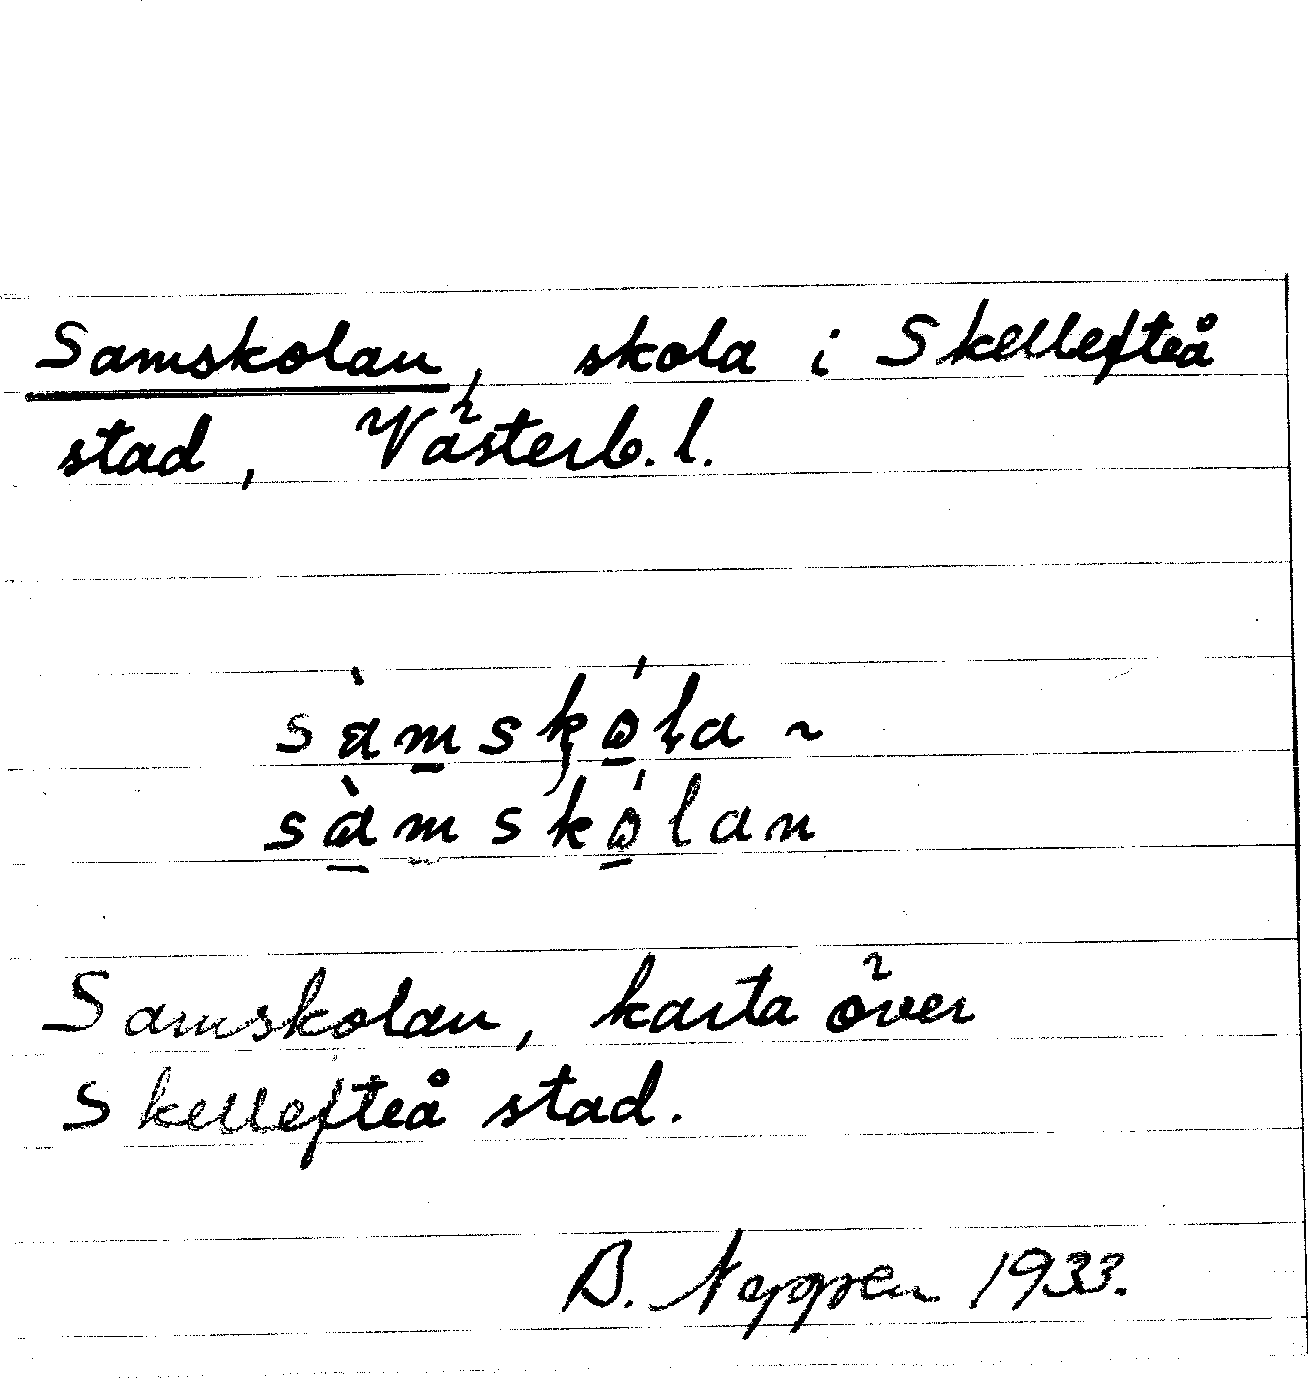 Samskolan, skola i Skellefteå
stad, Västerb. l.
sàmskόla ~
sàmskόlan
Samskolan, karta över
Skellefteå stad.
B. Neppen 1933.